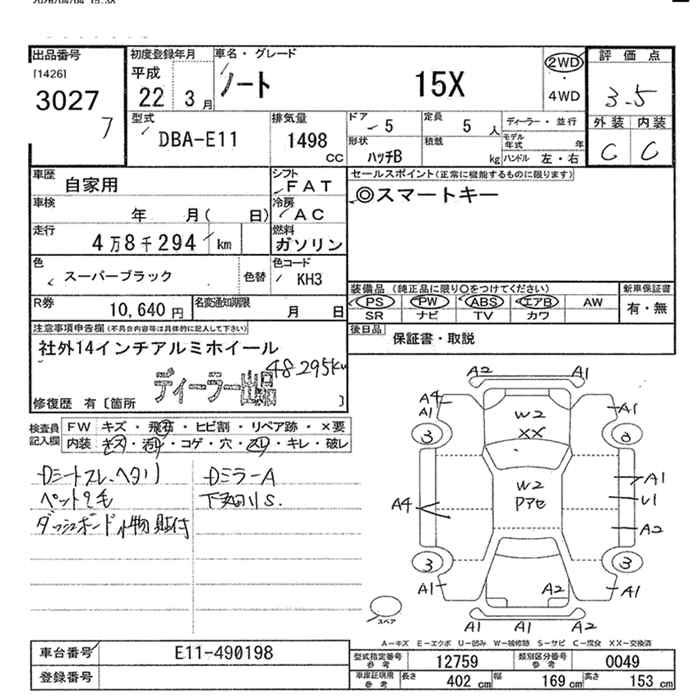 出品番号 初度登録年月 車名・グレード 評価点
[1426] 平成 ノート 15X 2WD
3027 22 3月 4WD 3.5
7 型式 排気量 ドア 定員 ディーラー・並行 外装 内装
DBA-E11 1498 5 5 人 モデル年式 年 C C
CC 形状 ハッチB 積載 kg ハンドル 左・右
車歴 自家用 シフト FAT セールスポイント(正常に機能するものに限ります)
車検 年 月( 日) 冷房 AC ◎スマートキー
走行 4万8千294 km 燃料 ガソリン
色 スーパーブラック 色替 色コード KH3
装備品 (純正品に限り○をつけてください) 新車保証書
R券 10,640円 名変通知期限 月 日 PS PW ABS エアB AW 有・無
SR ナビ TV カワ
注意事項申告欄(不具合内容等は具体的に記入して下さい) 後日品 保証書・取説
社外14インチアルミホイール
48.295km
ディーラー出品
修復歴 有〔箇所 〕
検査員記入欄 FW キズ・飛石・ヒビ割・リペア跡・×要
内装 キズ・汚レ・コゲ・穴・スレ・キレ・破レ
Dシートスレ、ヘタリ DミラーA
ペット毛 S.
ダッシュボード小物貼付
A2 A1
A4 A1 W2 XX A1
3 3
W2 Pアセ A1 U1
A4 A2
3 3
A1 A2 A1
スペア A1 A1 A2
A-キズ E-エクボ U-凹み W-補修跡 S-サビ C-腐食 XX-交換済
車台番号 E11-490198 型式指定番号 参考 12759 類別区分番号 参考 0049
登録番号 車庫証明用 参考 長さ 402 cm 幅 169 cm 高さ 153 cm